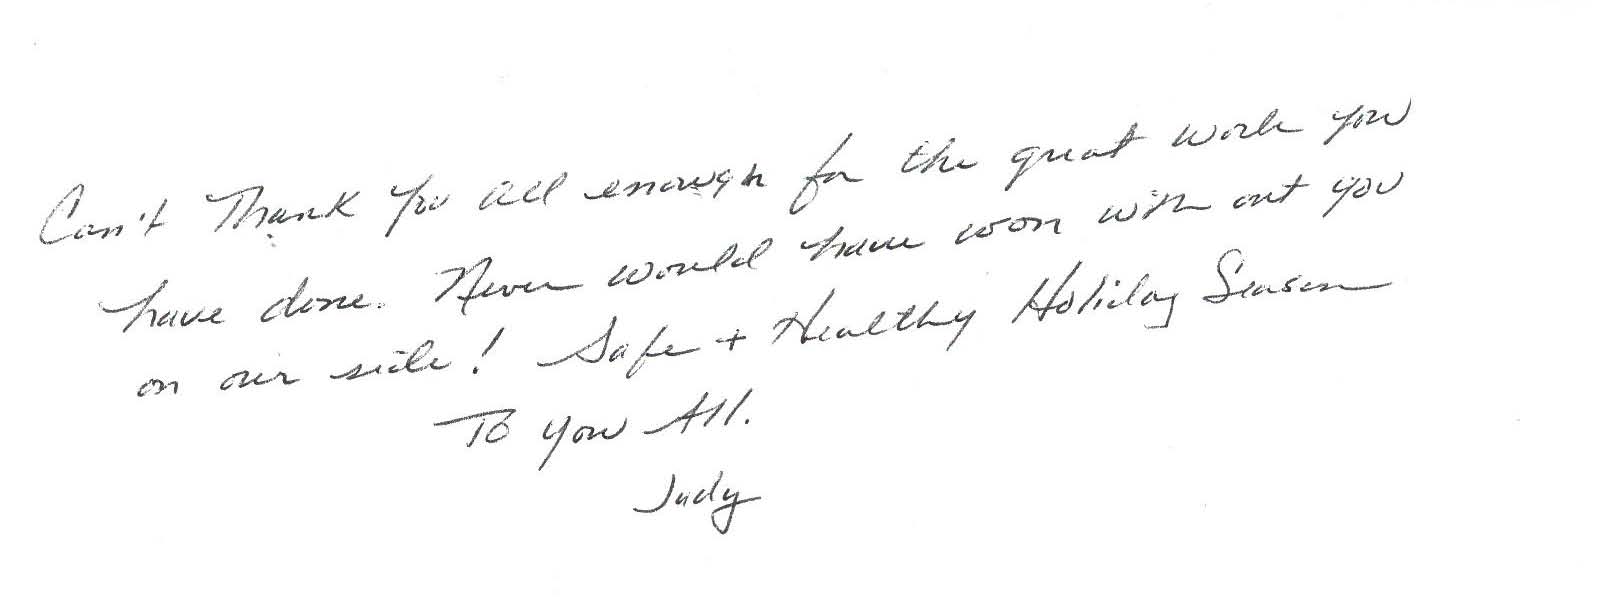 Can't Thank You all enough for the great work you
have done. Never would have won with out you
on our side! Safe + Healthy Holiday Season
To you All.
Judy